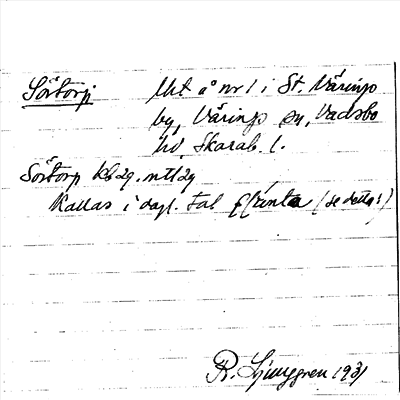 Sörtorp Uht å nr 1 i St. Väringo
by, Väringo sn, Vadsbo
hd, Skarab. l.
Sörtorp Kb29. mtl29
Kallas i dagl. tal (se detta!)
R. Ljunggren 1931